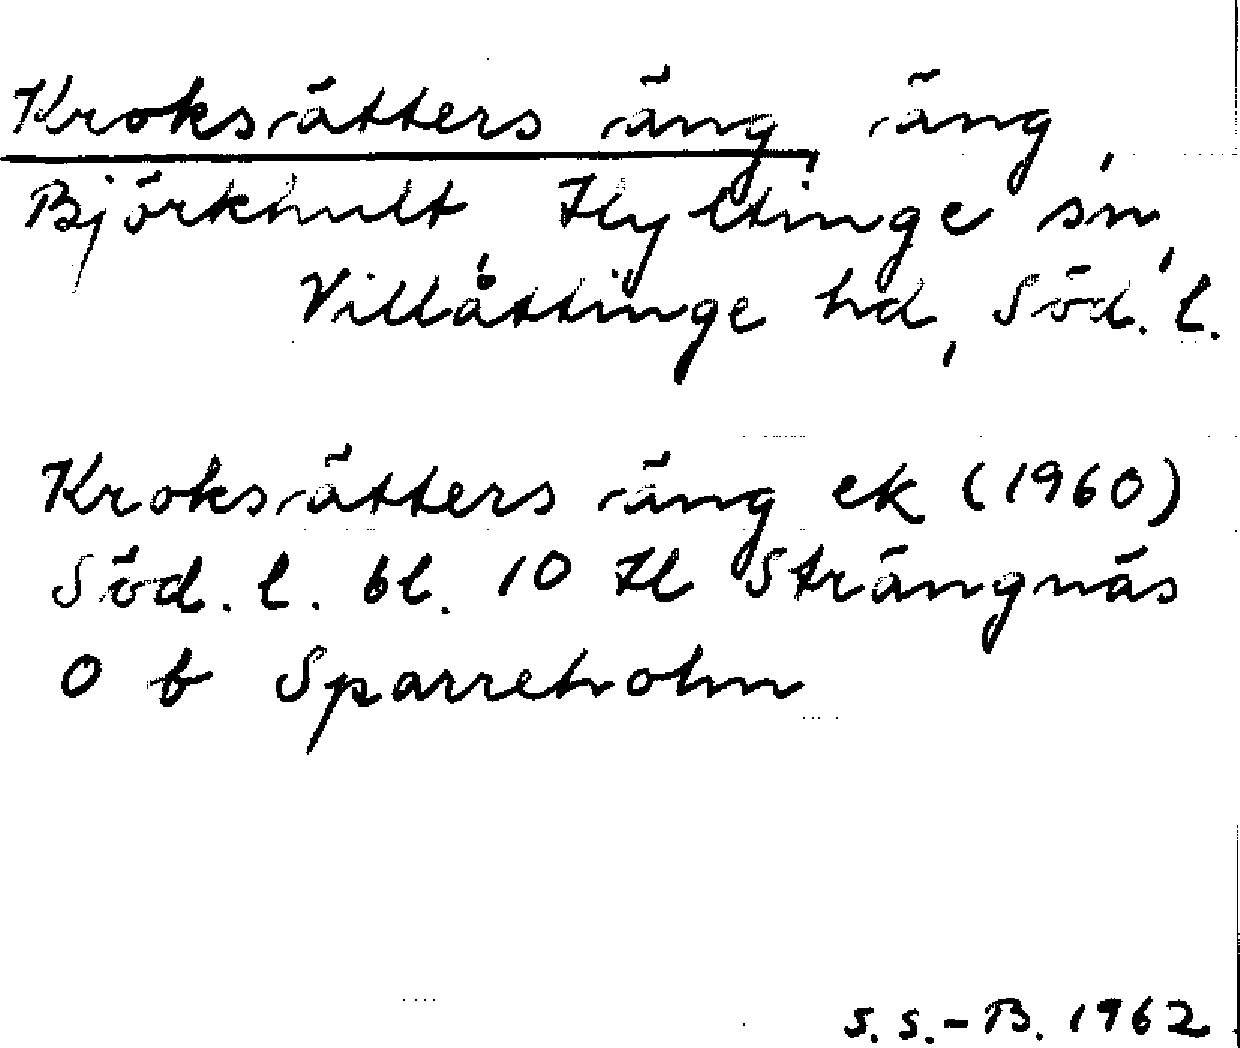 Kroksätters äng, äng,
Björkhult, Hyltinge sn,
Villåttinge hd, Söd. l.
Kroksätters äng ek (1960)
Söd. l. bl. 10 H Strängnäs
0 b Sparreholm
S. S.-B. 1962